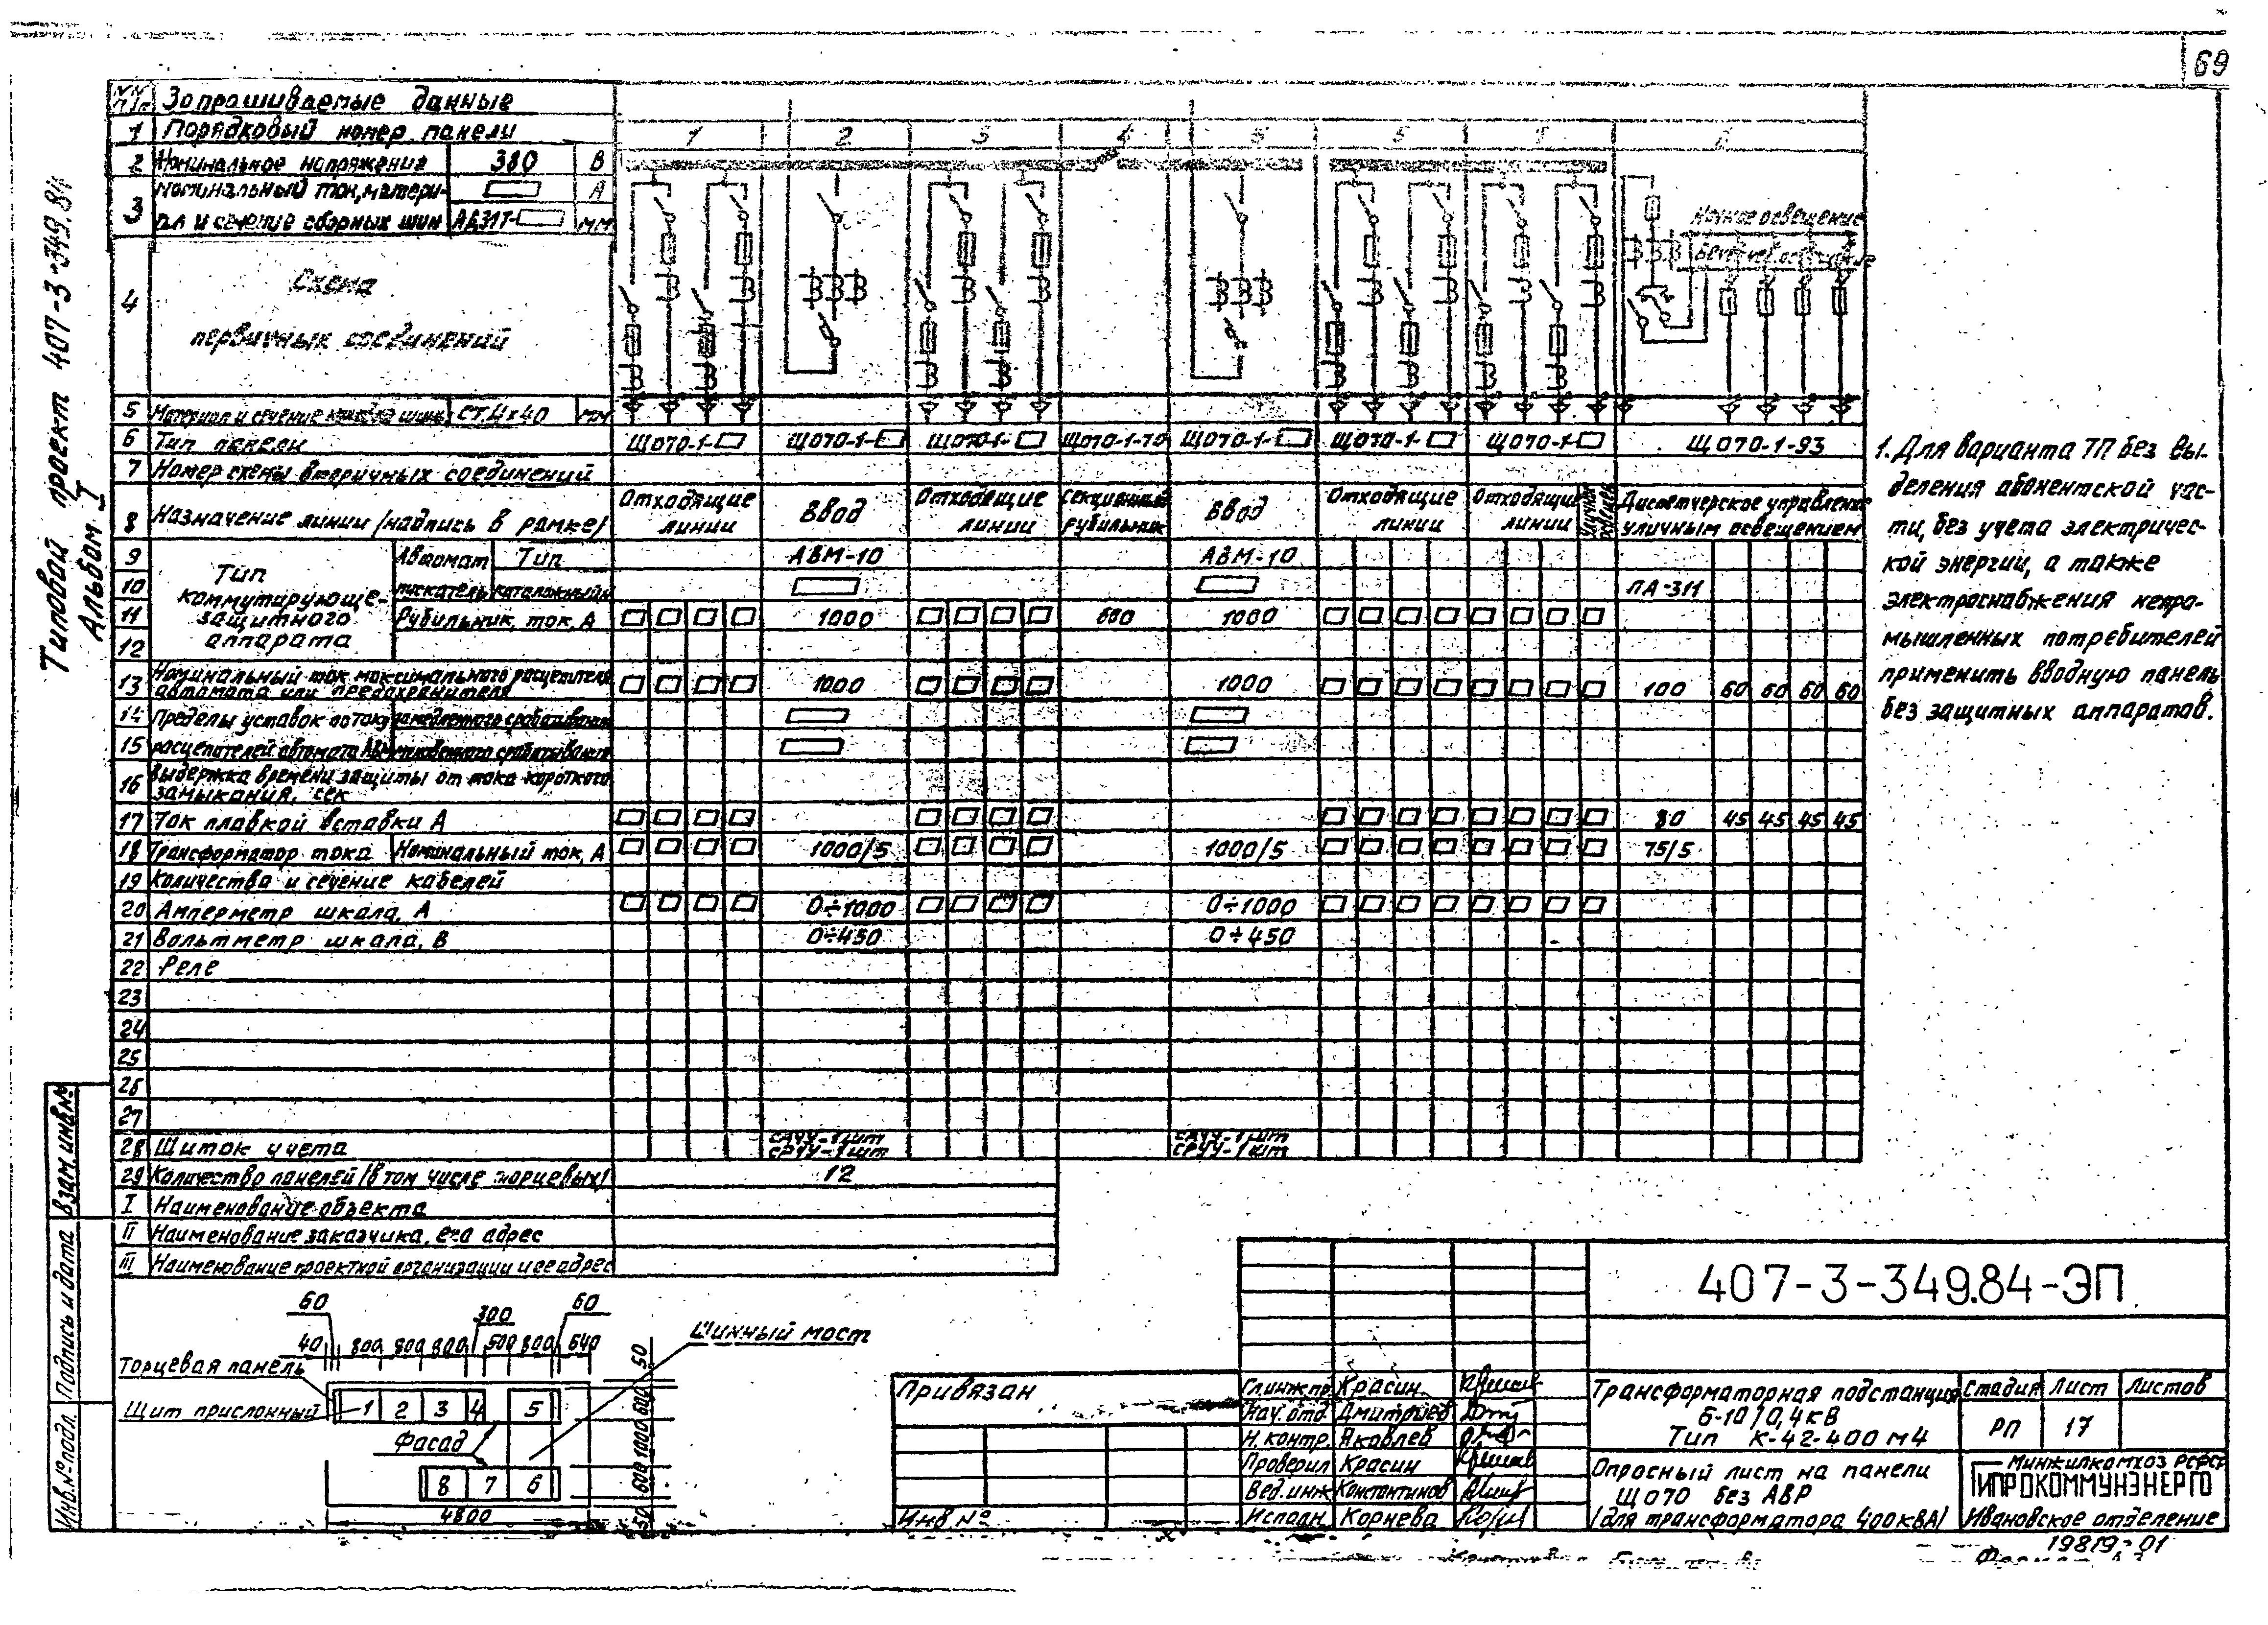 69
Типовой проект 407-3-349.84
Альбом I
Запрашиваемые данные
1 Порядковый номер панели 1 2 3 4 5
2 Номинальное напряжение 380 В
3 Номинальный ток, матери- А
ал и сечение сборных шин АД31Т- мм
4 Схема
первичных соединений
Ночное освещение
5 ст. 4х40 мм
6 Тип панели ЩО70-1- ЩО70-1- ЩО70-1- ЩО70-1-70 ЩО70-1- ЩО70-1- ЩО70-1- ЩО70-1-93
7 Номер схемы вторичных соединений
8 Назначение линии /надпись в рамке/ Отходящие линии Ввод Отходящие линии Секционный рубильник Ввод Отходящие линии Отходящие линии Диспетчерское управление уличным освещением
Тип
коммутирующе-
защитного
аппарата
9 Автомат Тип АВМ-10 АВМ-10
10 пускатель каталожный ПА-311
11 Рубильник, ток, А 1000 600 1000
12
13 Номинальный ток максимального расцепителя
автомата или предохранителя 1000 1000 100 60 60 60 60
14 Пределы уставок по току замедленного срабатывания
15 расцепителей автомата АВМ мгновенного срабатывания
16 Выдержка времени защиты от тока короткого
замыкания, сек
17 Ток плавкой вставки А 80 45 45 45 45
18 Трансформатор тока Номинальный ток, А 1000/5 1000/5 75/5
19 Количество и сечение кабелей
20 Амперметр шкала, А 0÷1000 0÷1000
21 Вольтметр шкала, В 0÷450 0÷450
22 Реле
23
24
25
26
27
28 Щиток учета САЧУ-1шт САЧУ-1шт
СРЧУ-1шт СРЧУ-1шт
29 Количество панелей /в том числе торцевых/ 12
I Наименование объекта
II Наименование заказчика, его адрес
III Наименование проектной организации и ее адрес
1. Для варианта ТП без вы-
деления абонентской час-
ти, без учета электричес-
кой энергии, а также
электроснабжения непро-
мышленных потребителей
применить вводную панель
без защитных аппаратов.
Взам инв.№
Подпись и дата
Инв.№ подл.
60 300 60
40 800 800 800 500 800 640
Шинный мост
Торцевая панель
Щит прислонный
1 2 3 4 5
Фасад
8 7 6
4800
50 600 1000 600 50
Привязан
Инв.№
407-3-349.84-ЭП
Гл.инж.пр. Красин
Нач.отд. Дмитриев
Н.контр. Яковлев
Проверил Красин
Вед.инж. Константинов
Исполн. Корнева
Трансформаторная подстанция
6-10/0,4кВ
Тип К-42-400м4
Стадия Лист Листов
РП 17
Опросный лист на панели
ЩО70 без АВР
/для трансформатора 400кВА/
Минжилкомхоз РСФСР
ГИПРОКОММУНЭНЕРГО
Ивановское отделение
19819-01